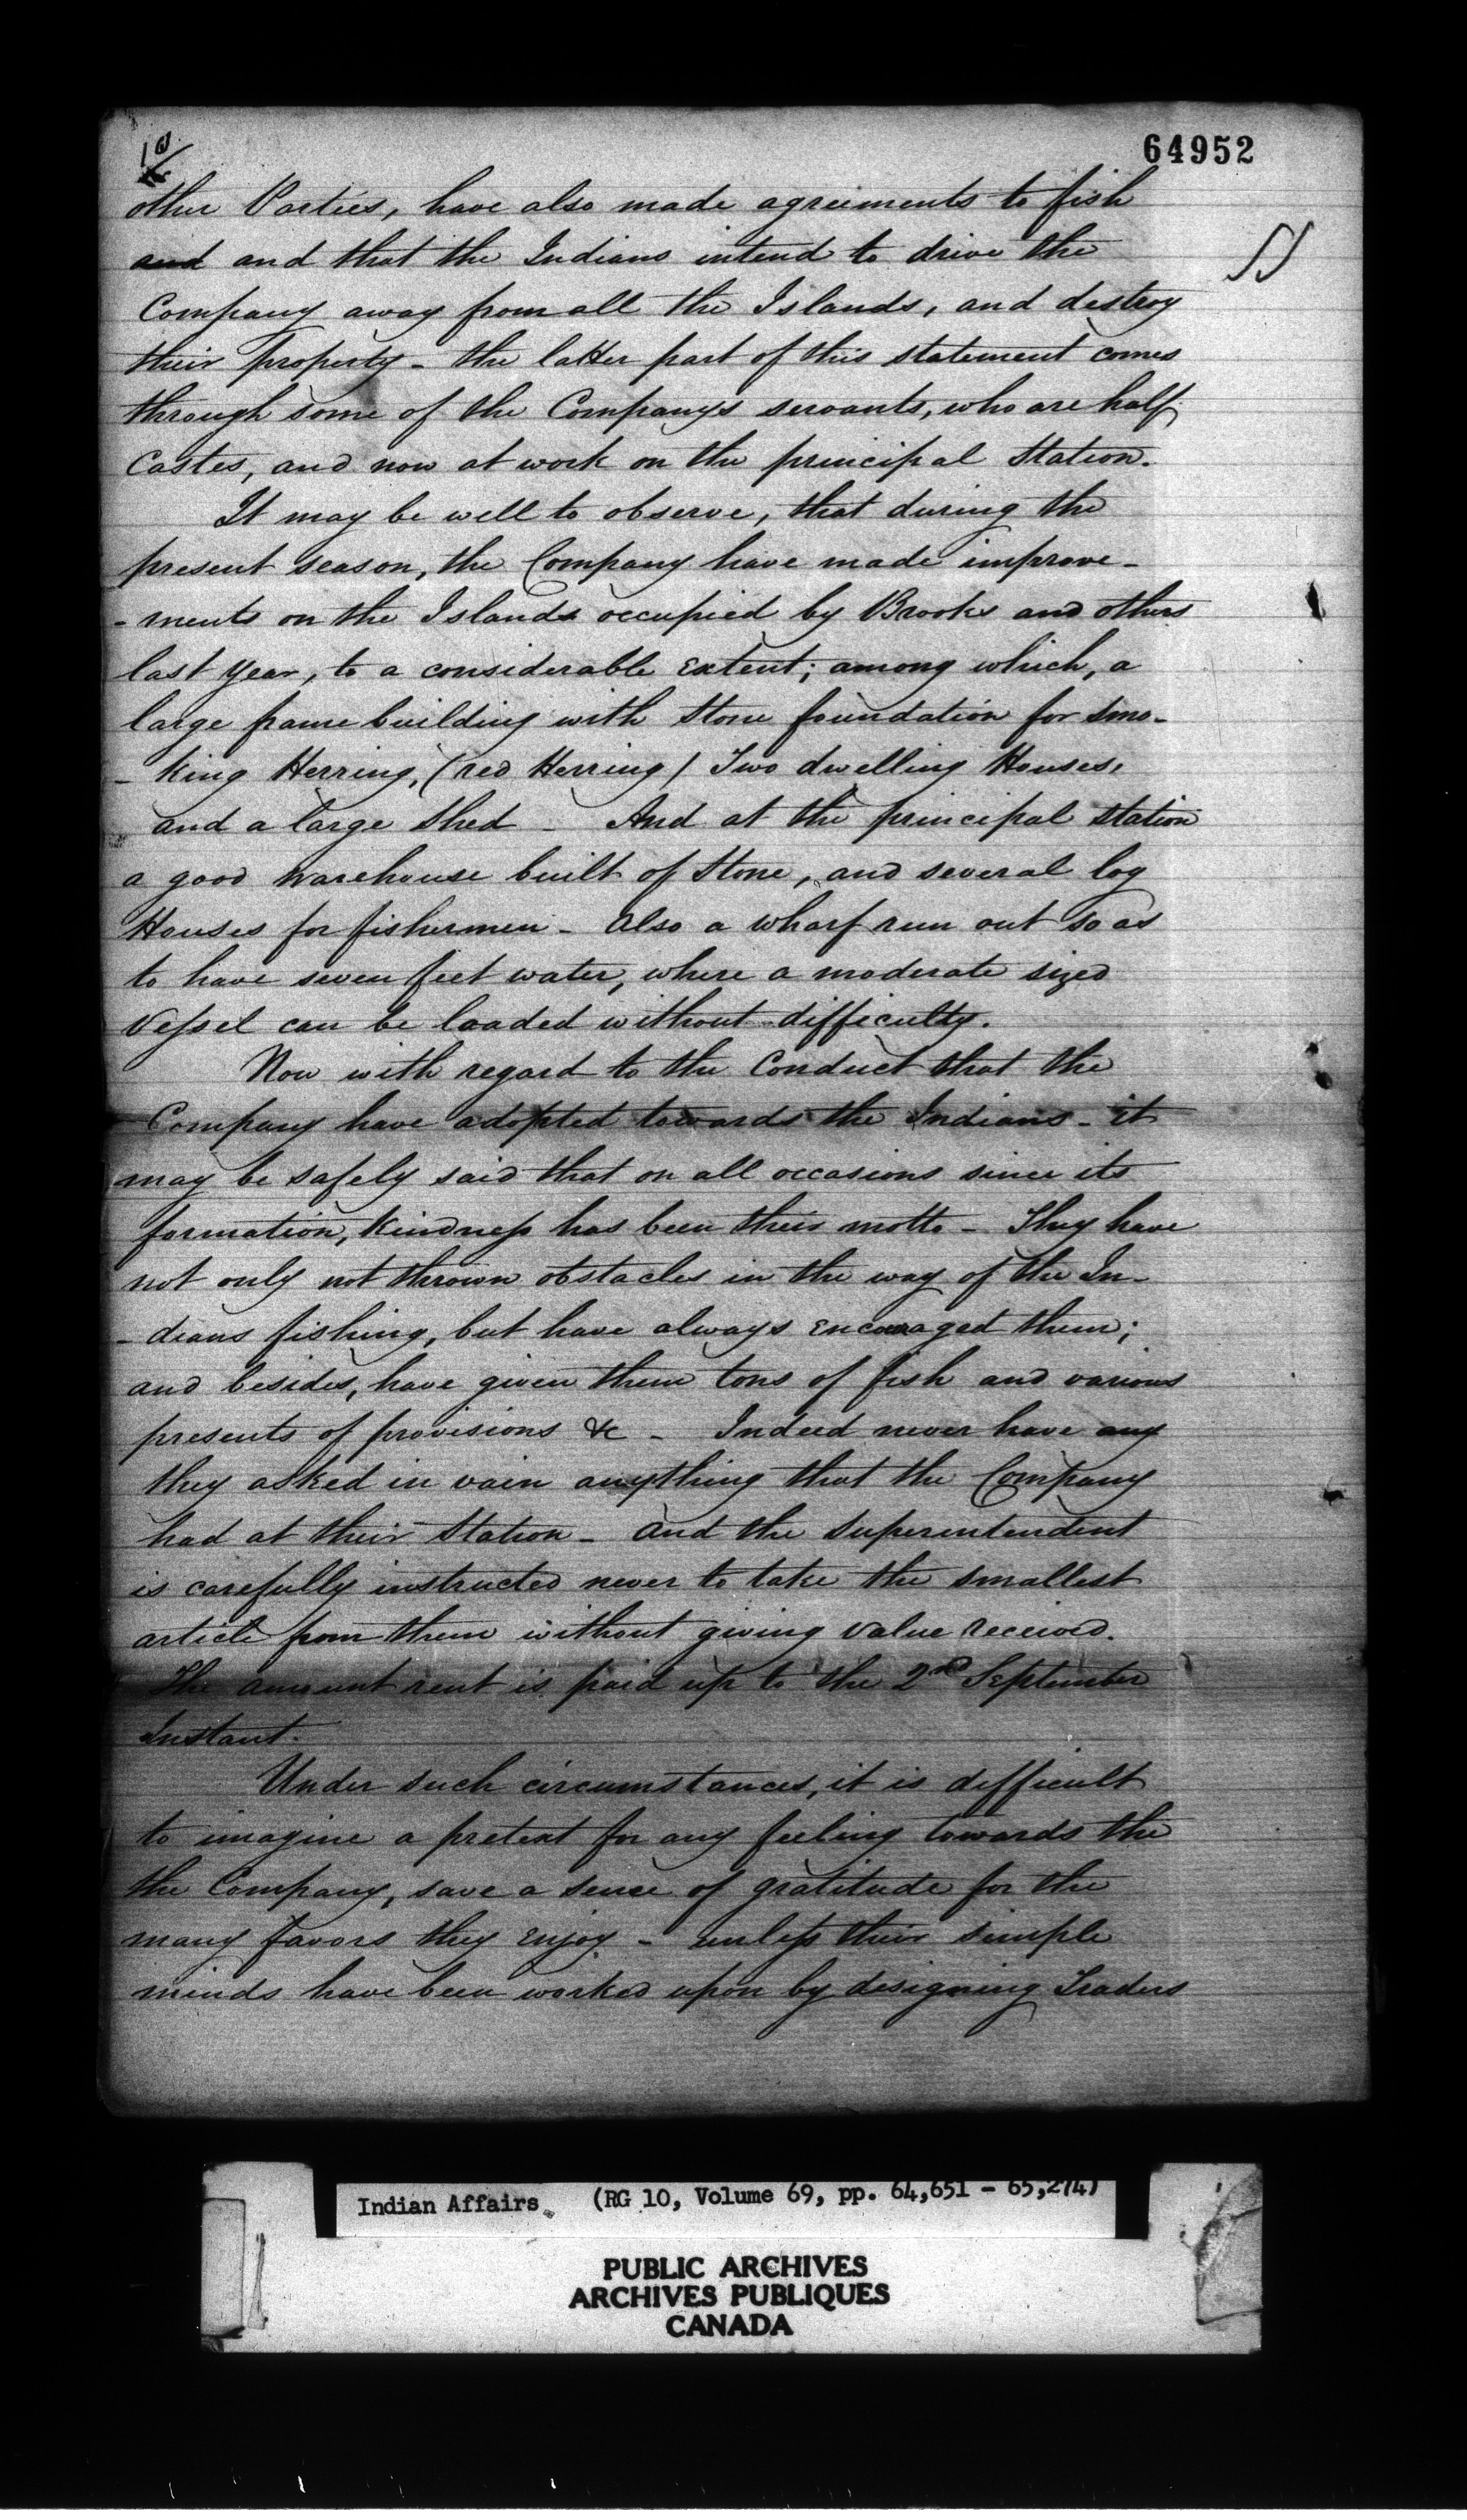 10
64952
other Parties, have also made agreements to fish
and and that the Indians intend to drive the
Company away from all the Islands, and destroy
their property - the latter part of this statement comes
through some of the Companys servants, who are half
Castes, and now at work on the principal Station.
It may be well to observe, that during the
present season, the Company have made improve-
-ments on the Islands occupied by Brooks and others
last year, to a considerable Extent; among which, a
large frame building with Stone foundation for smo-
-king Herring, (red Herring) Two dwelling Houses,
and a large Shed - And at the principal station
a good warehouse built of Stone, and several log
Houses for fishermen - Also a wharf run out so as
to have seven feet water, where a moderate sized
Vessel can be loaded without difficulty.
Now with regard to the Conduct that the
Company have adopted towards the Indians - it
may be safely said that on all occasions since its
formation, kindness has been their motto - They have
not only not thrown obstacles in the way of the In-
-dians fishing, but have always Encouraged them;
and besides, have given them tons of fish and various
presents of provisions &c - Indeed never have any
they asked in vain anything that the Company
had at their Station - And the Superintendent
is carefully instructed never to take the smallest
article from them without giving value received.
The amount rent is paid up to the 2nd September
Instant.
Under such circumstances, it is difficult
to imagine a pretext for any feeling towards the
the Company, save a sense of gratitude for the
many favors they Enjoy - unless their simple
minds have been worked upon by designing Traders
Indian Affairs. (RG 10, Volume 69, pp. 64,651 - 65,274)
PUBLIC ARCHIVES
ARCHIVES PUBLIQUES
CANADA